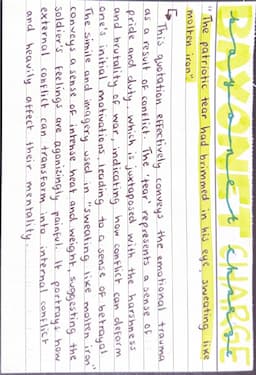 BAYONET CHARGE
bayonet charge
"The patriotic tear had brimmed in his eye sweating like
molten iron"
↳ This quotation effectively conveys the emotional trauma
as a result of conflict. The 'tear' represents a sense of
pride and duty, which is juxtaposed with the harshness
and brutality of war, indicating how conflict can deform
one's initial motivations, leading to a sense of betrayal.
The simile and imagery used in "sweating like molten iron"
conveys a sense of intense heat and weight, suggesting the
soldier's feelings are agonizingly painful. It portrays how
external conflict can transform into internal conflict
and heavily affect their mentality.